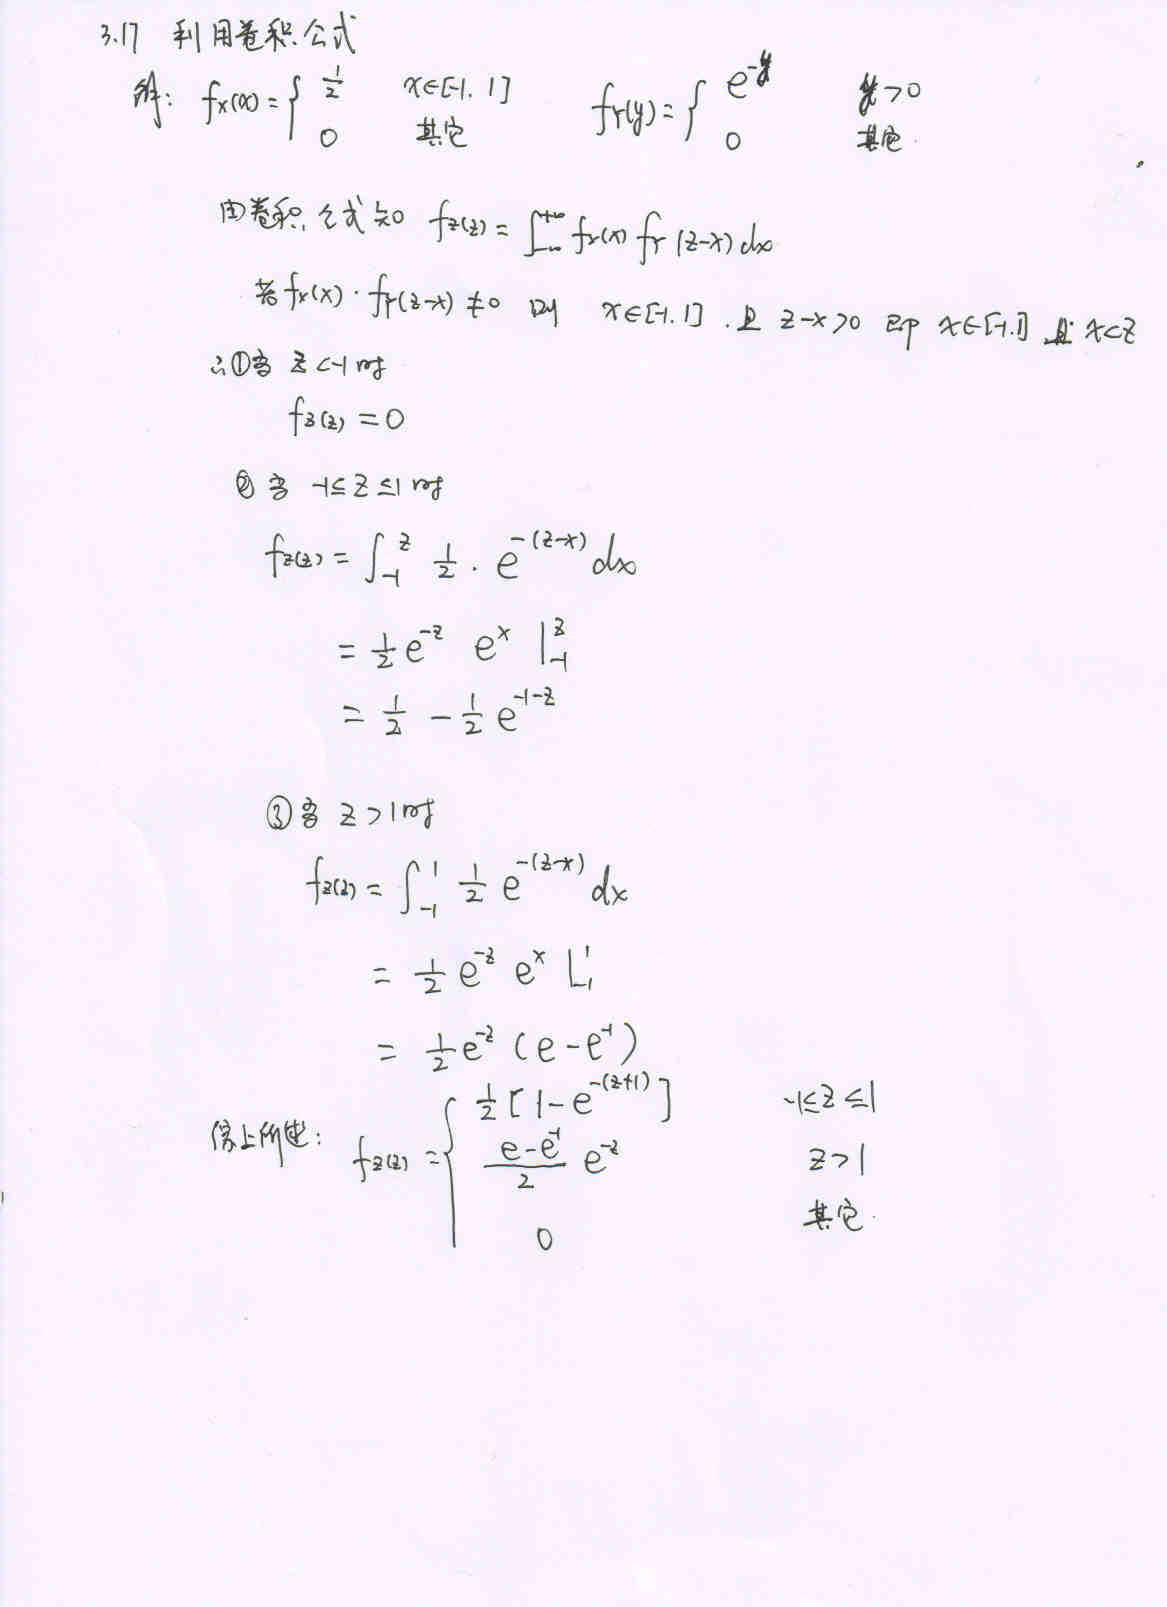 3.17 利用卷积公式
解: fX(x) = { 1/2 x∈[-1, 1] fY(y) = { e^{-y} y>0
0 其它 0 其它.
由卷积公式知 fZ(z) = ∫_{-∞}^{+∞} fX(x) fY(z-x) dx
若 fX(x)·fY(z-x) ≠ 0 则 x∈[-1.1]. 且 z-x>0 即 x∈[-1.1] 且 x<z
∴①当 z<-1时
fZ(z) = 0
②当 -1≤z≤1时
fZ(z) = ∫_{-1}^{z} 1/2 · e^{-(z-x)} dx
= 1/2 e^{-z} e^{x} |_{-1}^{z}
= 1/2 - 1/2 e^{-1-z}
③当 z>1时
fZ(z) = ∫_{-1}^{1} 1/2 e^{-(z-x)} dx
= 1/2 e^{-z} e^{x} |_{-1}^{1}
= 1/2 e^{-z} (e-e^{-1})
综上所述: fZ(z) = { 1/2 [1-e^{-(z+1)}] -1≤z≤1
(e-e^{-1})/2 e^{-z} z>1
0 其它.